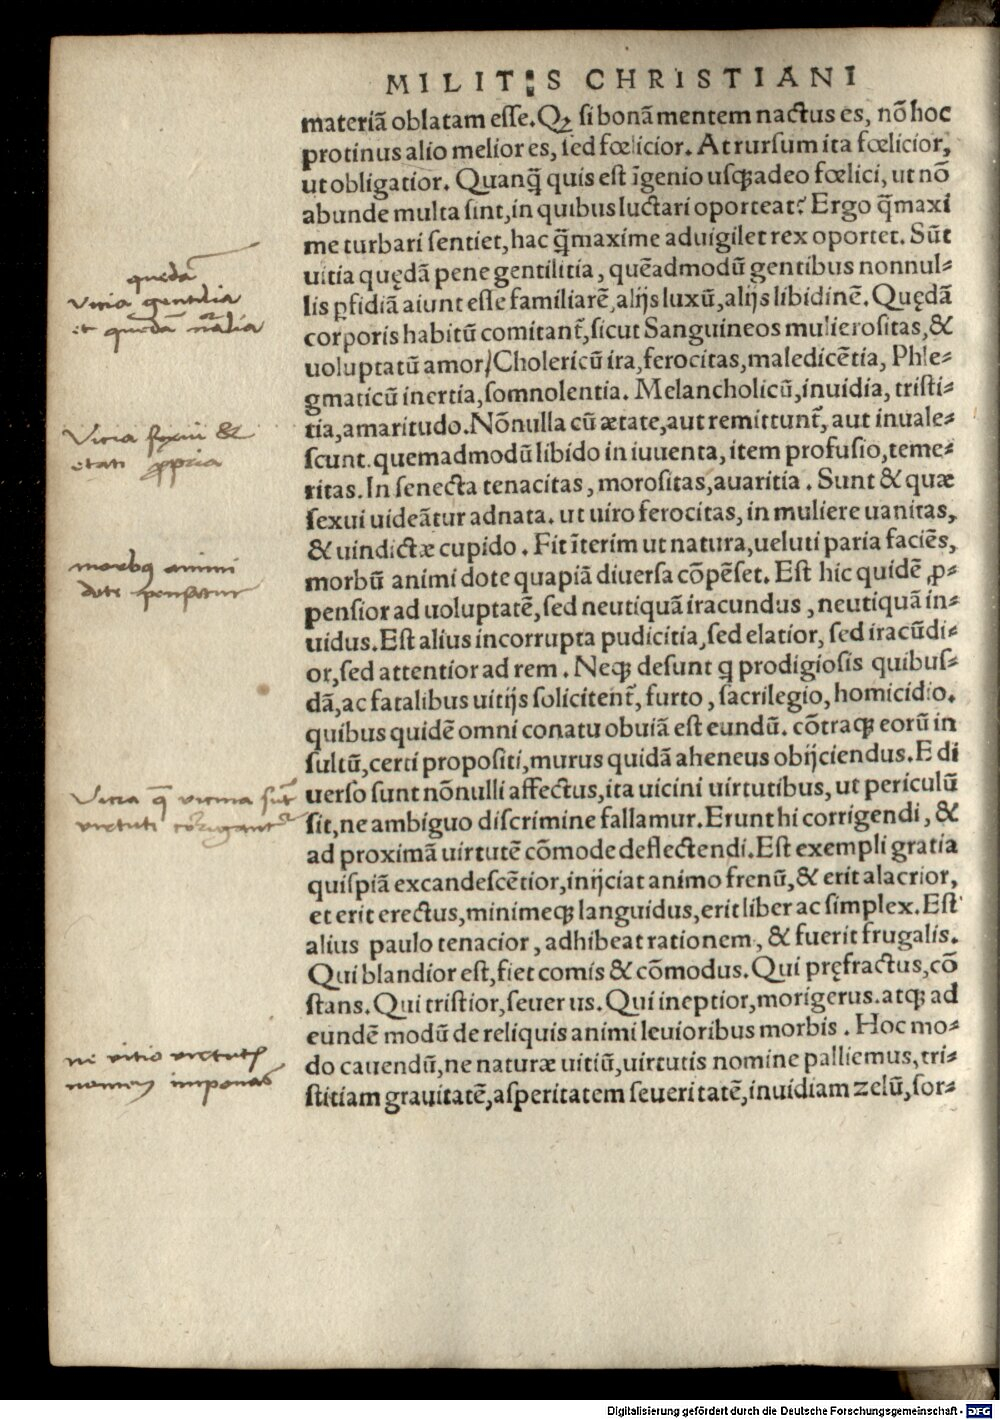 MILITIS CHRISTIANI
materiā oblatam esse. Qꝫ si bonā mentem nactus es, nō hoc
protinus alio melior es, sed fœlicior. At rursum ita fœlicior,
ut obligatior. Quanq̃ quis est īgenio usqꝫ adeo fœlici, ut nō
abunde multa sint, in quibus luctari oporteat? Ergo q̃maxi
me turbari sentiet, hac q̃maxime aduigilet rex oportet. Sūt
uitia quędā pene gentilitia, quēadmodū gentibus nonnul-
lis ꝑfidiā aiunt esse familiarē, alijs luxū, alijs libidinē. Quędā
corporis habitū comitant̃, sicut Sanguineos mulierositas, &
uoluptatū amor/ Cholericū ira, ferocitas, maledicētia, Phle-
gmaticū inertia, somnolentia. Melancholicū, inuidia, tristi-
tia, amaritudo. Nōnulla cū ætate, aut remittunt̃, aut inuale-
scunt. quemadmodū libido in iuuenta, item profusio, teme-
ritas. In senecta tenacitas, morositas, auaritia. Sunt & quæ
sexui uideātur adnata. ut uiro ferocitas, in muliere uanitas,
& uindictæ cupido. Fit īterim ut natura, ueluti paria faciēs,
morbū animi dote quapiā diuersa cōpēset. Est hic quidē ꝓ-
pensior ad uoluptatē, sed neutiquā iracundus, neutiquā in-
uidus. Est alius incorrupta pudicitia, sed elatior, sed iracūdi-
or, sed attentior ad rem. Neqꝫ desunt q prodigiosis quibus-
dā, ac fatalibus uitijs solicitent̃, furto, sacrilegio, homicidio.
quibus quidē omni conatu obuiā est eundū. cōtraqꝫ eorū in
sultū, certi propositi, murus quidā aheneus obijciendus. E di
uerso sunt nōnulli affectus, ita uicini uirtutibus, ut periculū
sit, ne ambiguo discrimine fallamur. Erunt hi corrigendi, &
ad proximā uirtutē cōmode deflectendi. Est exempli gratia
quispiā excandescētior, inijciat animo frenū, & erit alacrior,
et erit erectus, minimeqꝫ languidus, erit liber ac simplex. Est
alius paulo tenacior, adhibeat rationem, & fuerit frugalis.
Qui blandior est, fiet comis & cōmodus. Qui pręfractus, cō
stans. Qui tristior, seuerus. Qui ineptior, morigerus. atqꝫ ad
eundē modū de reliquis animi leuioribus morbis. Hoc mo-
do cauendū, ne naturæ uitiū, uirtutis nomine palliemus, tri-
stitiam grauitatē, asperitatem seueritatē, inuidiam zelū, sor-
quedā
vitia gentilia
et quedā nālia
Vitia sexui &
etati ꝓpria
morbꝰ animi
dote pensatur
Vitia q̄ vicina sūt
virtuti corrigantr
ne vitio virtutis
nomen imponas
Digitalisierung gefördert durch die Deutsche Forschungsgemeinschaft - DFG